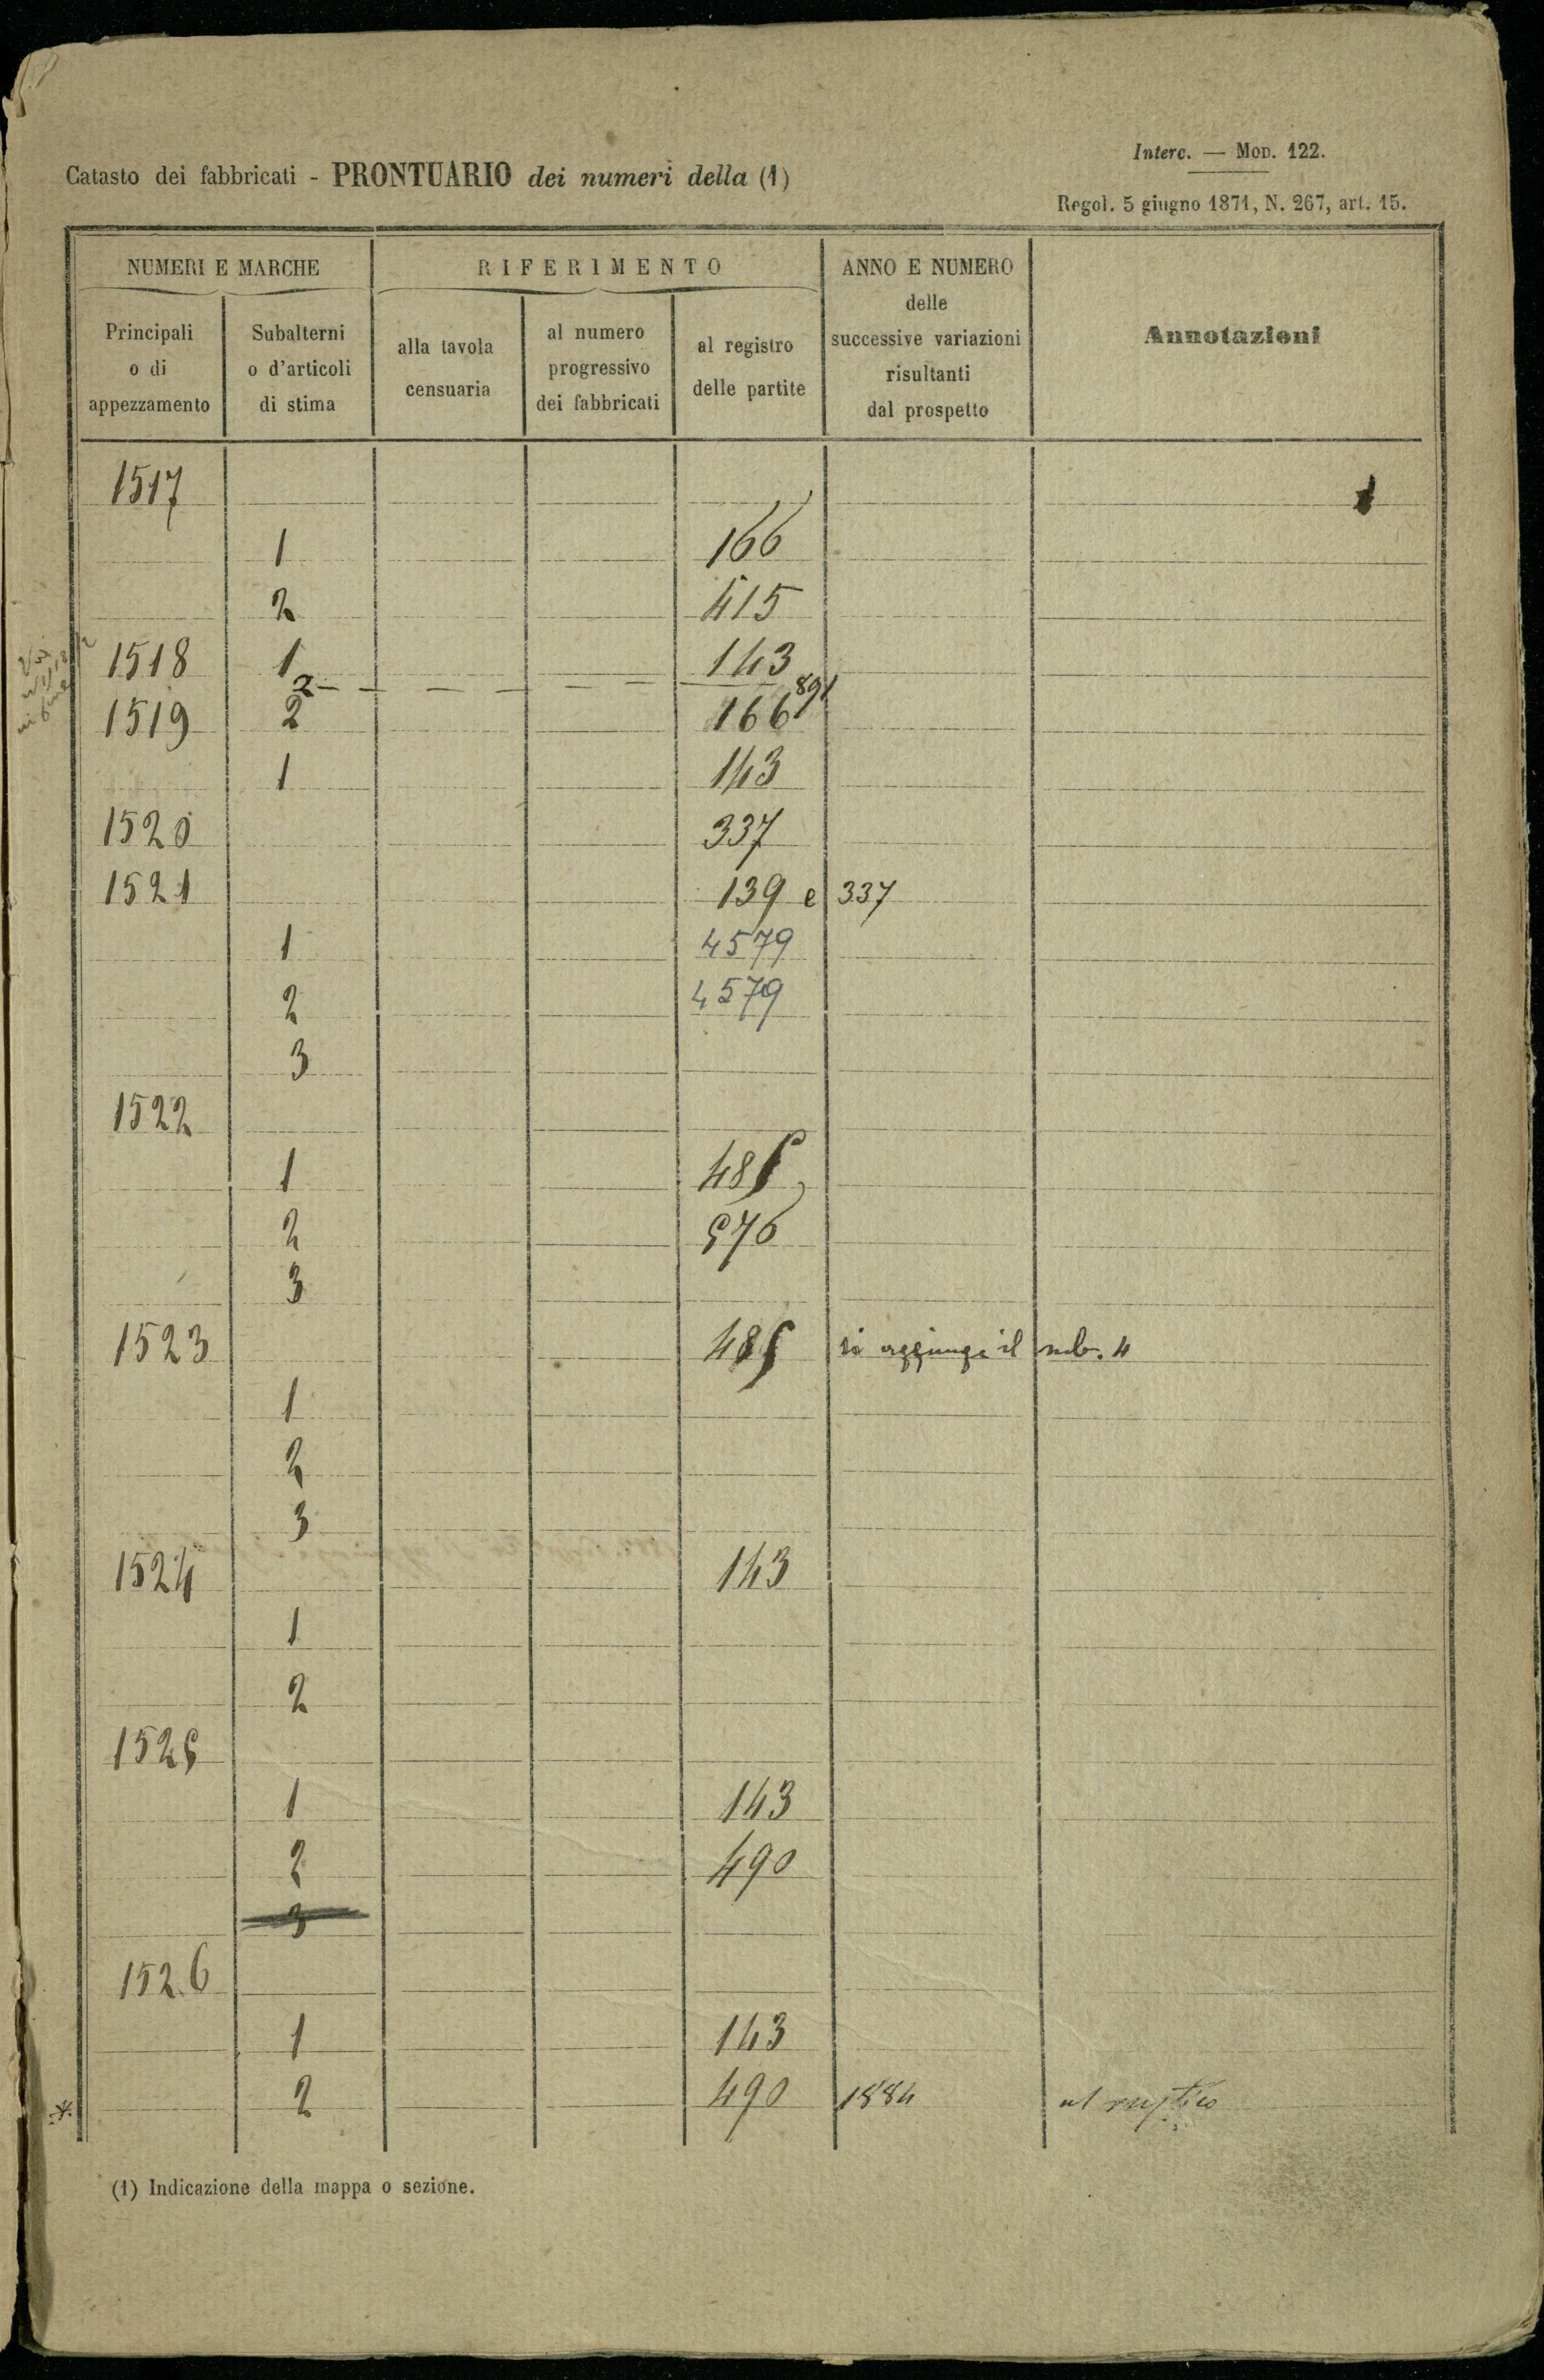 Interc. — Mod. 122.
Catasto dei fabbricati - PRONTUARIO dei numeri della (1)
Regol. 5 giugno 1871, N. 267, art. 15.
NUMERI E MARCHE
RIFERIMENTO
ANNO E NUMERO
delle
successive variazioni
risultanti
dal prospetto
Annotazioni
Principali
o di
appezzamento
Subalterni
o d'articoli
di stima
alla tavola
censuaria
al numero
progressivo
dei fabbricati
al registro
delle partite
1517
1 166
2 415
1518 1 143
2 - - - - - - - 891
1519 2 166
1 143
1520 337
1521 139 e 337
1 4579
2 4579
3
1522
1 485
2 576
3
1523 485 si aggiunge il sub. 4
1
2
3
1524 143
1
2
1525
1 143
2 490
3
1526
1 143
2 490 1884 al rustico
(1) Indicazione della mappa o sezione.